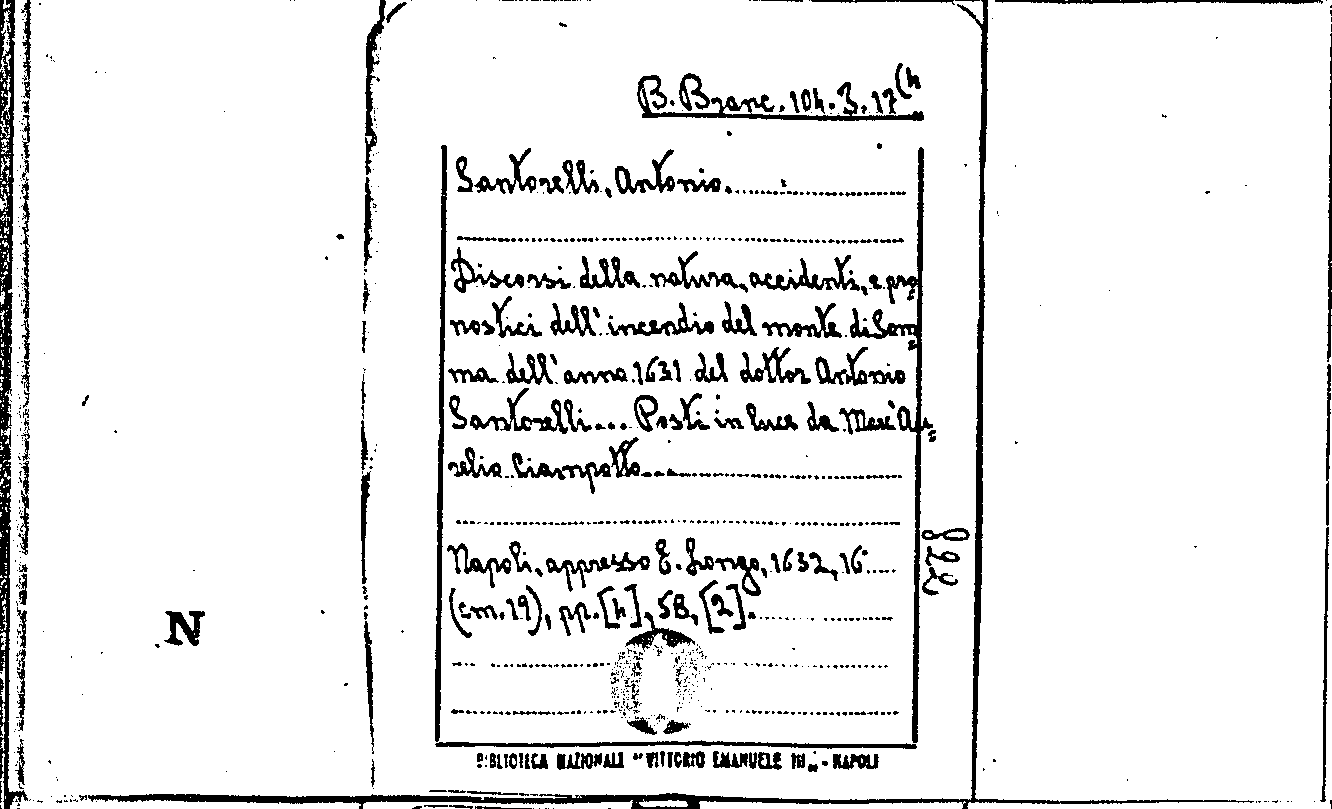 B. Branc. 104. 3. 17(4
Santorelli, Antonio.
Discorsi della natura, accidenti, e pro=
nostici dell'incendio del monte di Som=
ma dell'anno 1631 del dottor Antonio
Santorelli... Posti in luce da Marc'Au=
relio Ciampotto...
Napoli, appresso E. Longo, 1632, 16°
(cm. 19), pp. [4], 58, [2].
822
N
BIBLIOTECA NAZIONALE "VITTORIO EMANUELE III„ - NAPOLI